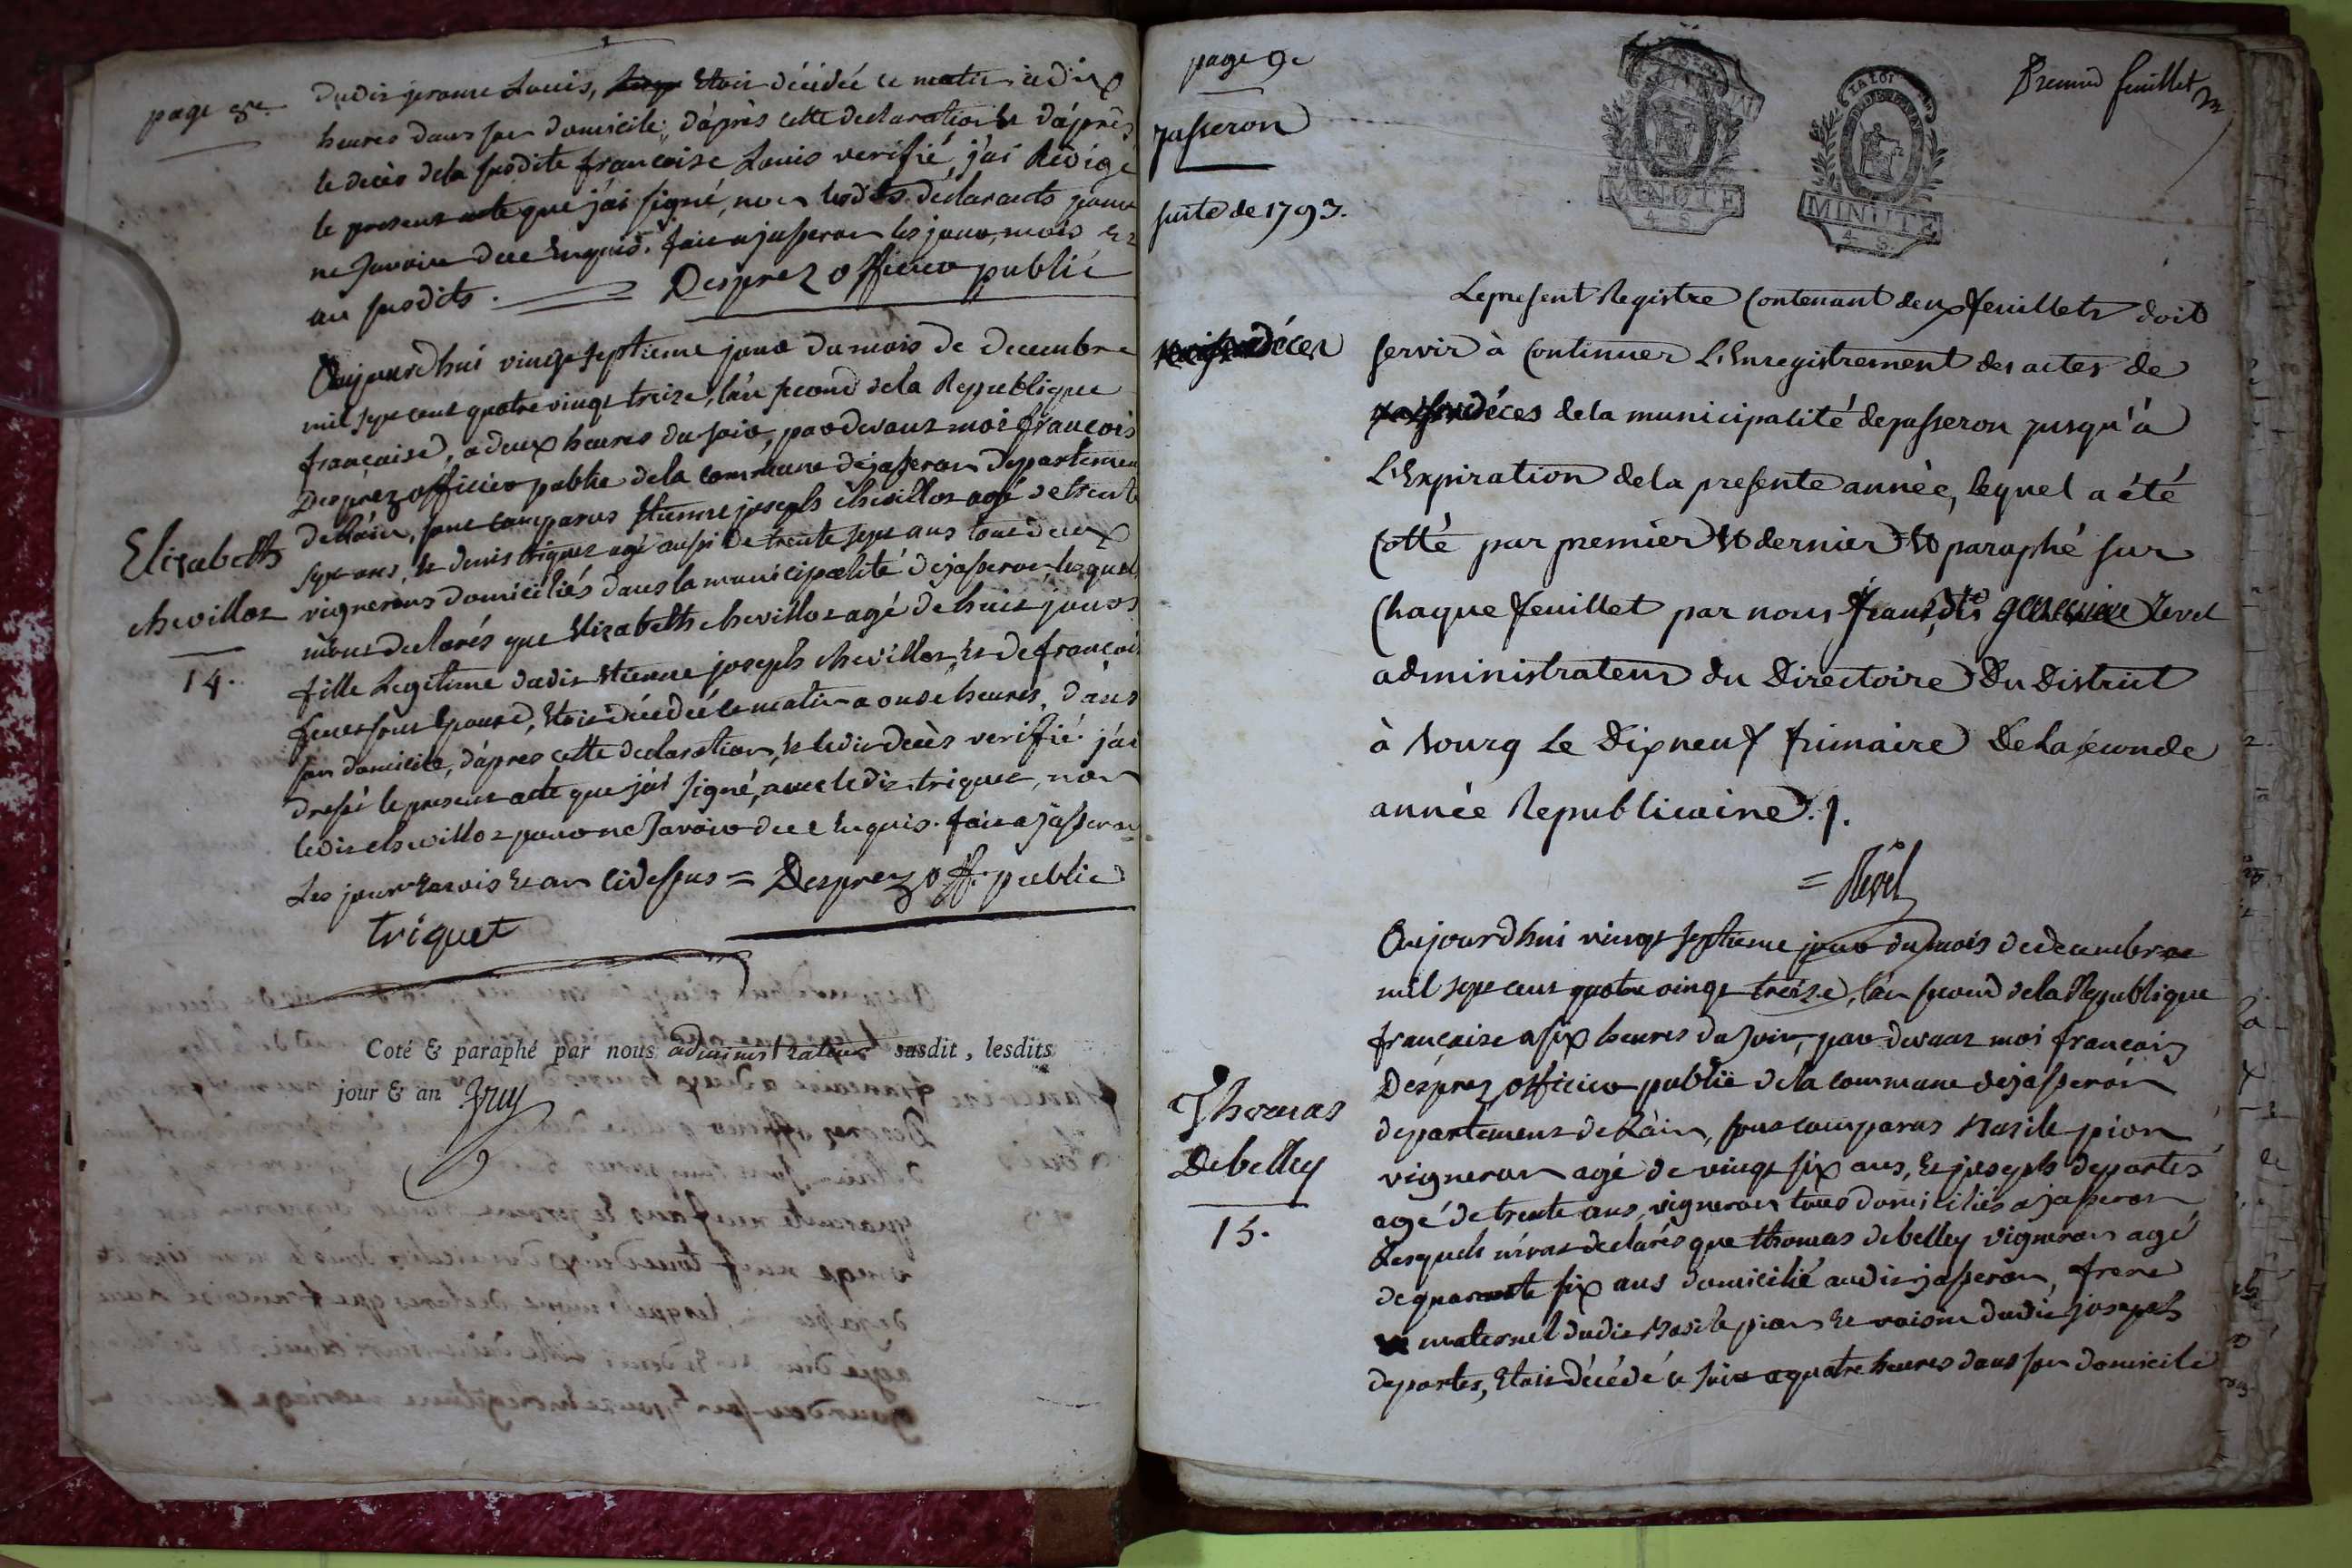 page 8e
dudit jerome Louis, etoit décédée ce matin a dix
heures dans son domicile; d'áprès cette declaration et d'áprès
le decès dela susdite françoise Louis verifié, j'ai Redigé
le present acte que j'ai signé, non lesdits déclarants pour
ne savoir de ce enquis. fait a jasseron les jour, mois et
an susdits. = Desprez officier public
Aujourdhui vingt septieme jour du mois de decembre
mil sept cent quatre vingt treize, l'an second dela Republique
française, a deux heures du soir, par devant moi françois
Desprez officier public dela commune de jasseron departement
de l'ain, sont comparus Etienne joseph chevillot agé de trente
sept ans, et denis triquet agé aussi de trente sept ans tous deux
vignerons domiciliés dans la municipalité de jasseron, lesquels
m'ont declarés que Elizabeth chevillot agé de huit jours
fille Legitime dudit Etienne joseph chevillot, et de françoise
son Epouse, etoit décédée ce matin a onze heures, dans
son domicile, d'ápres cette declaration, et ledit decès verifié j'ai
dressé le present acte que j'ai signé, avec ledit triquet, non
ledit chevillot pour ne savoir de ce enquis. fait a jasseron
Les jour et mois et an cidessus = Desprez off. public
triquet
Elizabeth
chevillot
14.
Coté & paraphé par nous administrateur susdit, lesdits
jour & an
page 9e
Jasseron
suite de 1793.
décès
LA LOI
MINUTE
4 S.
MINUTE
4 S.
Premier feuillet
Le present Registre Contenant deux feuillets doit
servir à Continuer L'Enregistrement des actes de
décés dela municipalité de jasseron jusqu'á
L'Expiration dela presente année, lequel a été
Cotté par premier et dernier et paraphé sur
Chaque feuillet par nous Revel
administrateur du Directoire Du District
à bourg Le Dix neuf frimaire De la seconde
année Republicaine ./.
= Revel
Aujourdhui vingt septieme jour du mois de decembre
mil sept cent quatre vingt treize, l'an second dela Republique
française a six heures du soir, par devant moi françois
Desprez officier public dela commune de jasseron
departement de L'ain, sont comparus Basile pion
vigneron agé de vingt six ans, et joseph deportes
agé de trente ans, vigneron tous domiciliés a jasseron
Lesquels m'ont declarés que thomas debelley vigneron agé
de quarante six ans domicilié audit jasseron, frere
maternel dudit Basile pion et voisin dudit joseph
deportes, etoit décédé ce soir a quatre heures dans son domicile
Thomas
Debelley
15.